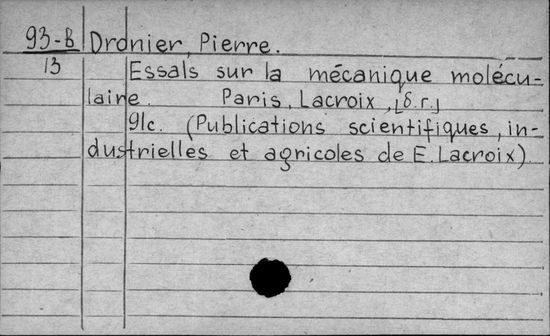 93-B Dronier, Pierre.
13 Essals sur la mécanique molécu-
laire. Paris, Lacroix, [б.г.]
91c. (Publications scientifiques, in-
dustrielles et agricoles de E. Lacroix)